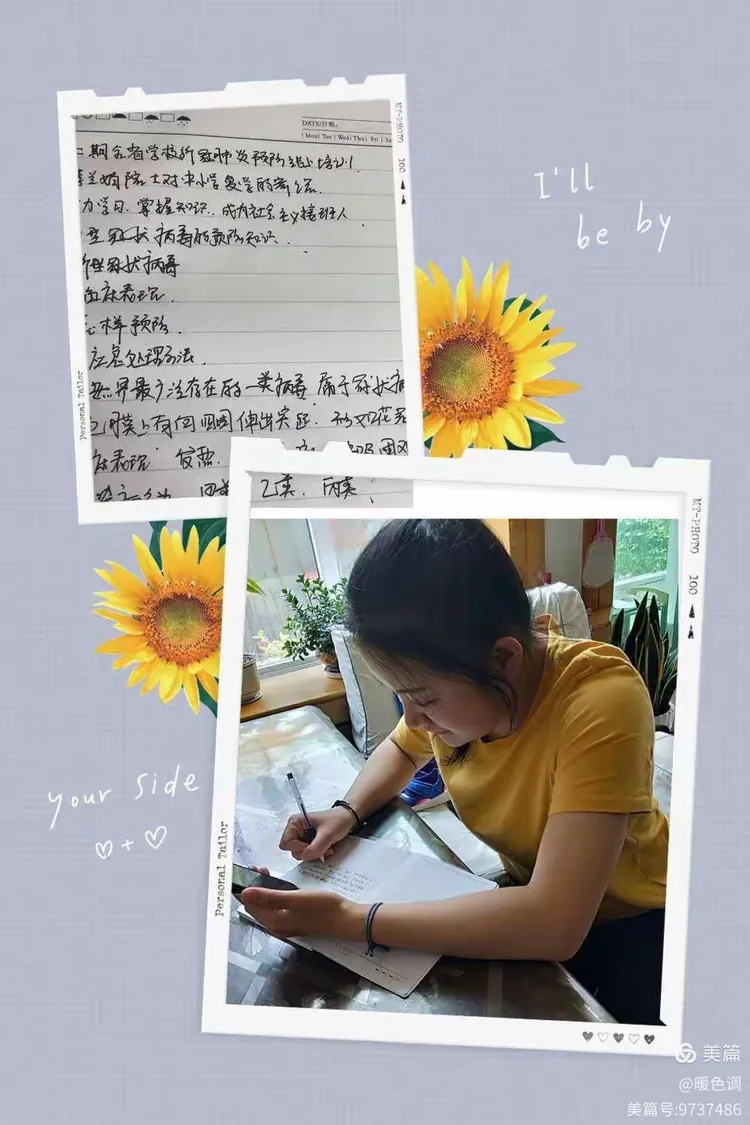 DATE/日期:
Mon Tue Wed Thu Fri Sa
二期全省学校新冠肺炎预防线上培训
兰娟院士对中小学复学的寄语
力学习、掌握知识、成为社会主义接班人
型冠状病毒的预防知识.
新型冠状病毒
临床表现.
怎样预防.
应急处理办法.
世界最广泛存在的一类病毒 属于冠状病
膜上有向四周伸出突起 形如花冠
床表现 发热.
乙类. 丙类.
MT-PHOTO 100
Personal Tailor
I'll
be by
MT-PHOTO 100
your side
♡+♡
Personal Tailor
美篇
@暖色调
美篇号:9737486